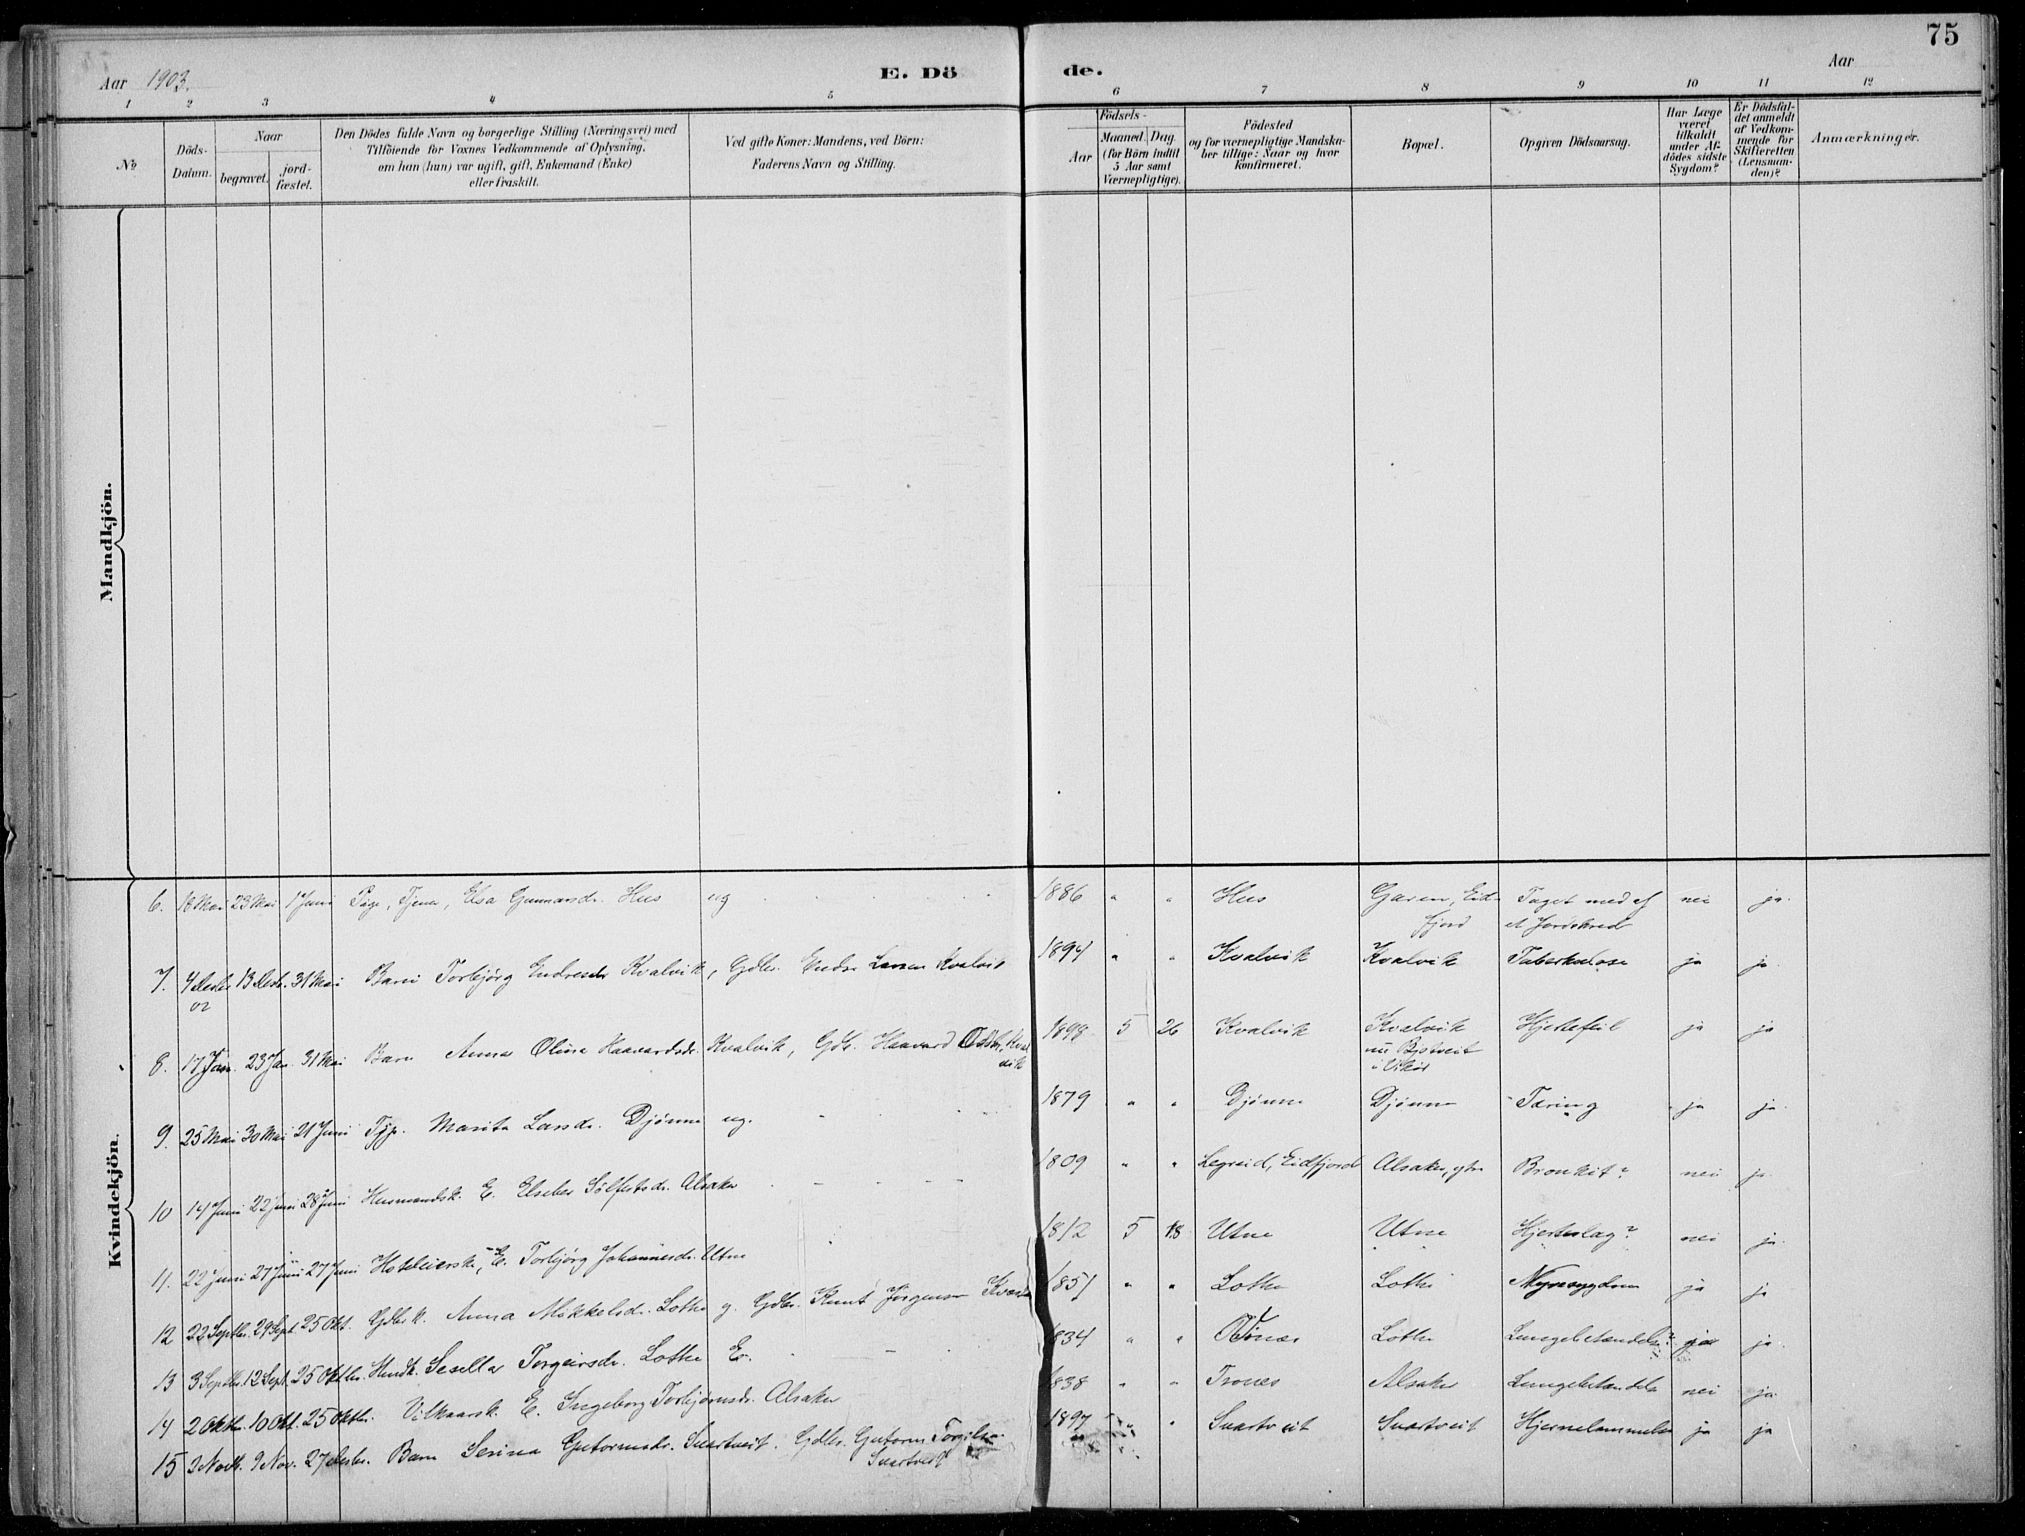 75
Aar 1903.
E. Dö de.
Aar
1 2 3 4 5 6 7 8 9 10 11 12
No
Döds-Datum.
Naar
begravet.
jord-fæstet.
Den Dödes fulde Navn og borgerlige Stilling (Næringsvei) med
Tilföiende for Voxnes Vedkommende af Oplysning,
om han (hun) var ugift, gift, Enkemand (Enke)
eller fraskilt.
Ved gifte Koner: Mandens, ved Börn:
Faderens Navn og Stilling.
Födsels-
Aar
Maaned. Dag.
(for Börn indtil
5 Aar samt
Værnepligtige).
Födested
og for værnepligtige Mandska-
ber tillige: Naar og hvor
konfirmeret.
Bopæl.
Opgiven Dödsaarsag.
Har Læge
været
tilkaldt
under Af-
dödes sidste
Sygdom?
Er Dödsfal-
det anmeldt
af Vedkom-
mende for
Skifteretten
(Lensman-
den)?
Anmærkninger.
Mandkjön.
Kvindekjön.
6. 16 Mai 23 Mai 1 Juni Pige, Tjener, Elsa Gunnarsdr. Hus ug 1886 " " Hus Garen, Eid- Taget med af nei ja.
fjord et Jordskred
7. 4 Decbr 13 Decbr. 31 Mai Barn Torbjørg Endresdr Kvalvik, Gdbr. Endre Larsen Kvalvik 1894 " " Kvalvik Kvalvik Tuberkulose ja ja.
02
8. 17 Jan. 23 Jan. 31 Mai Barn Anna Olina Haavardsdr. Kvalvik, Gdbr. Haavard Kval- 1898 5 26 Kvalvik Kvalvik Hjertefeil ja ja
vik nu
i Vikør
9. 25 Mai 30 Mai 21 Juni Pige. Marita Larsdr. Djønne ug. 1879 " " Djønne Djønne Tæring ja ja.
10 14 Juni 22 Juni 28 Juni Husmandsk. E. Elseber Sølfestsdr. Alsaker 1809 " " Legreid, Eidfjord Alsaker, ytre Bronkit? nei ja.
11. 22 Juni 27 Juni 27 Juni Hoteleierske, E. Torbjørg Johannesdr. Utne 1812 5 18 Utne Utne Hjerteslag? nei ja.
12 22 Septbr. 29 Sept. 25 Okt. Gdbr.k. Anna Mikkelsdr. Lothe g. Gdbr. Knut Jørgensen 1851 " " Lothe Lothe Nyresygdom ja ja
13 3 Septbr. 12 Sept. 25 Oktbr. Sesella Torgeirsdr. Lothe E. 1834 " " Lothe Lungebetændelse? ja.
14 2 Oktbr. 10 Okt. 25 Oktbr. Vilkaarsk. E. Ingeborg Torbjørnsdr. Alsaker 1838 " " Tronæs Alsaker Lungebetændelse nei ja.
15 2 Novb. 9 Nov. 27 Decbr. Barn Serina Gutormsdr. Svartveit. Gdbr. Gutorm Torgilsen 1897 " " Svartveit Svartveit Hjernelammelse ja ja
Svartveit